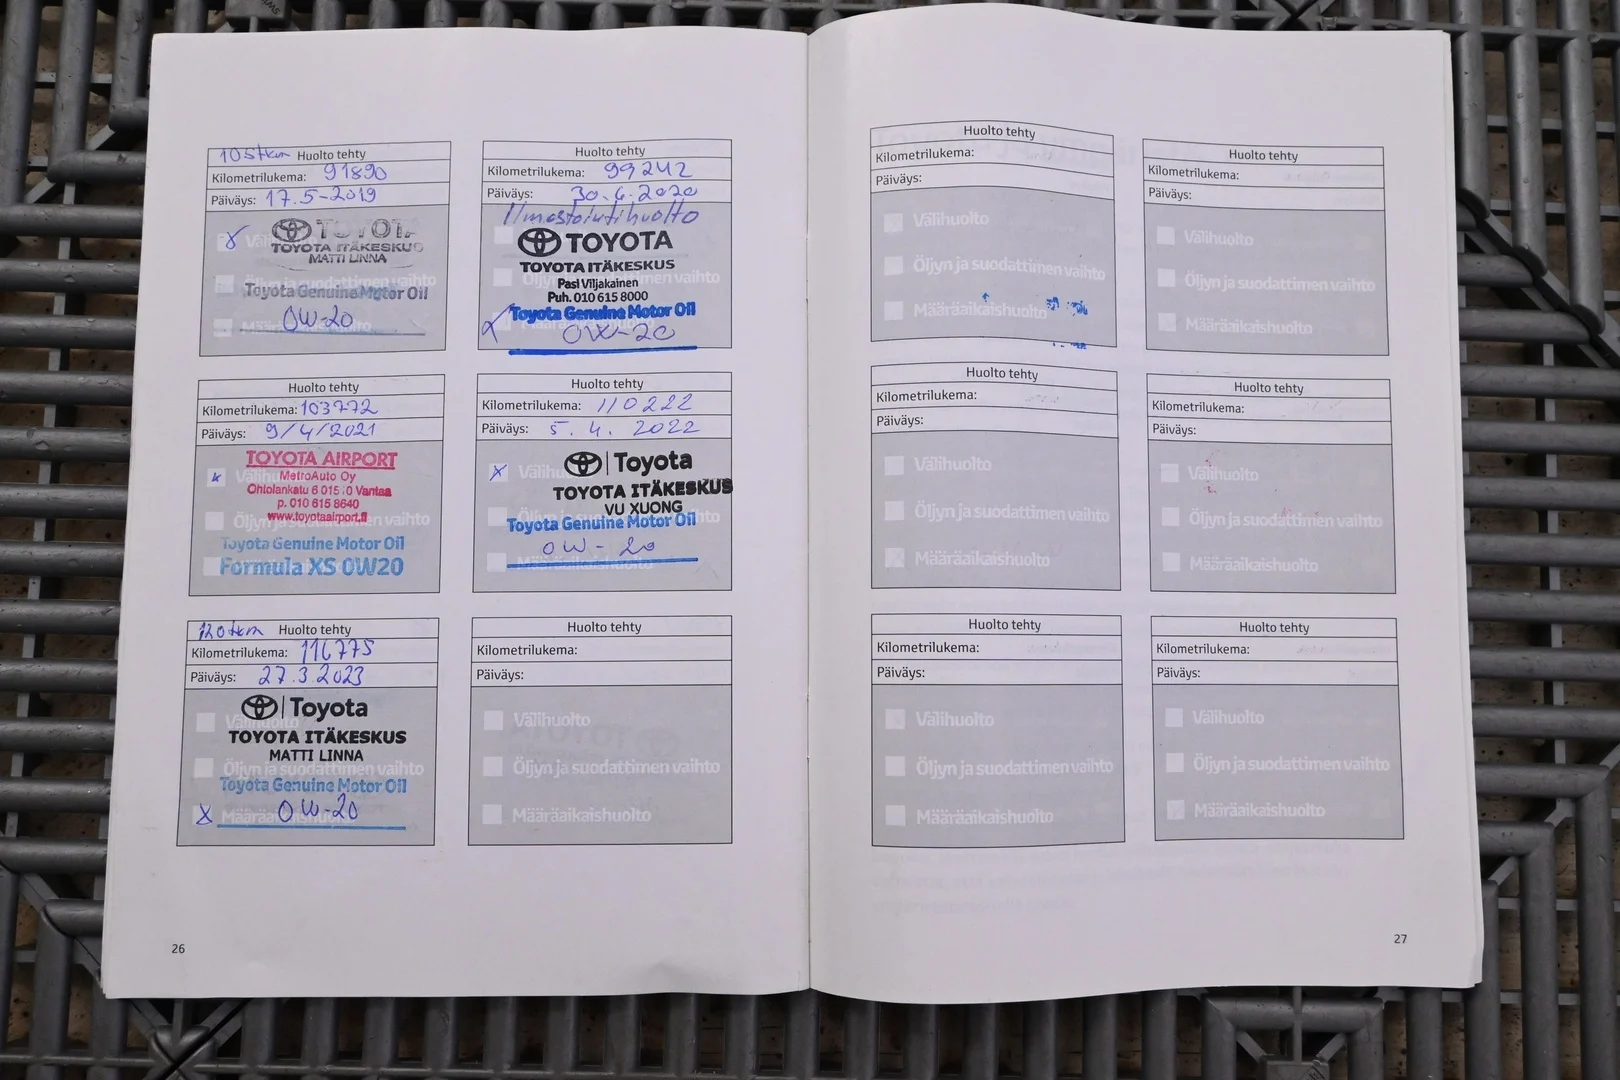 105tkm Huolto tehty
Kilometrilukema: 91890
Päiväys: 17.5-2019
TOYOTA
TOYOTA ITÄKESKUS
MATTI LINNA
Toyota Genuine Motor Oil
0W-20
Määräaikaishuolto
Huolto tehty
Kilometrilukema: 99242
Päiväys: 30.6.2020
Ilmastointihuolto
TOYOTA
TOYOTA ITÄKESKUS
Pasi Viljakainen
Öljyn ja suodattimen vaihto
Puh. 010 615 8000
Toyota Genuine Motor Oil
0W-20
Huolto tehty
Kilometrilukema: 103772
Päiväys: 9/4/2021
TOYOTA AIRPORT
Välihuolto
MetroAuto Oy
Ohtolankatu 6 01510 Vantaa
p. 010 615 8640
www.toyotaairport.fi
Öljyn ja suodattimen vaihto
Toyota Genuine Motor Oil
Formula XS 0W20
Huolto tehty
Kilometrilukema: 110222
Päiväys: 5. 4. 2022
Toyota
Välihuolto
TOYOTA ITÄKESKUS
VU XUONG
Öljyn ja suodattimen vaihto
Toyota Genuine Motor Oil
0W-20
Määräaikaishuolto
120tkm Huolto tehty
Kilometrilukema: 116775
Päiväys: 27.3.2023
Toyota
Välihuolto
TOYOTA ITÄKESKUS
MATTI LINNA
Öljyn ja suodattimen vaihto
Toyota Genuine Motor Oil
0W-20
Määräaikaishuolto
Huolto tehty
Kilometrilukema:
Päiväys:
Välihuolto
Öljyn ja suodattimen vaihto
Määräaikaishuolto
26
Huolto tehty
Kilometrilukema:
Päiväys:
Välihuolto
Öljyn ja suodattimen vaihto
Määräaikaishuolto
Huolto tehty
Kilometrilukema:
Päiväys:
Välihuolto
Öljyn ja suodattimen vaihto
Määräaikaishuolto
Huolto tehty
Kilometrilukema:
Päiväys:
Välihuolto
Öljyn ja suodattimen vaihto
Määräaikaishuolto
Huolto tehty
Kilometrilukema:
Päiväys:
Välihuolto
Öljyn ja suodattimen vaihto
Määräaikaishuolto
Huolto tehty
Kilometrilukema:
Päiväys:
Välihuolto
Öljyn ja suodattimen vaihto
Määräaikaishuolto
Huolto tehty
Kilometrilukema:
Päiväys:
Välihuolto
Öljyn ja suodattimen vaihto
Määräaikaishuolto
27